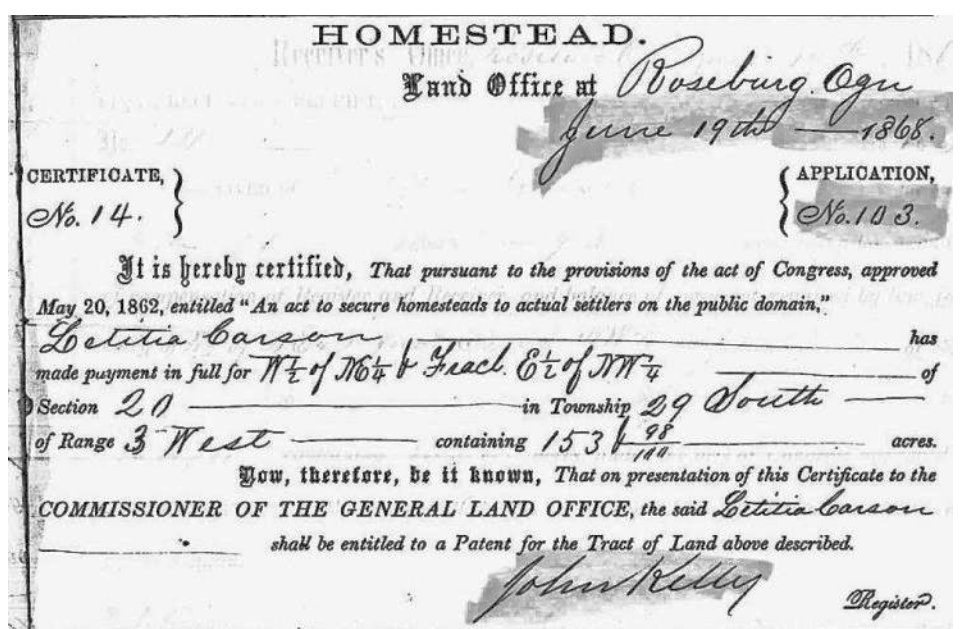 HOMESTEAD.
Land Office at Roseburg Ogn
June 19th — 1868.
CERTIFICATE,
No. 14.
APPLICATION,
No. 103.
It is hereby certified, That pursuant to the provisions of the act of Congress, approved
May 20, 1862, entitled "An act to secure homesteads to actual settlers on the public domain,"
Letitia Carson has
made payment in full for W½ of NE¼ & Fracl. E½ of NW¼ of
Section 20 in Township 29 South
of Range 3 West containing 153 & 98/100 acres.
Now, therefore, be it known, That on presentation of this Certificate to the
COMMISSIONER OF THE GENERAL LAND OFFICE, the said Letitia Carson
shall be entitled to a Patent for the Tract of Land above described.
John Kelly
Register.